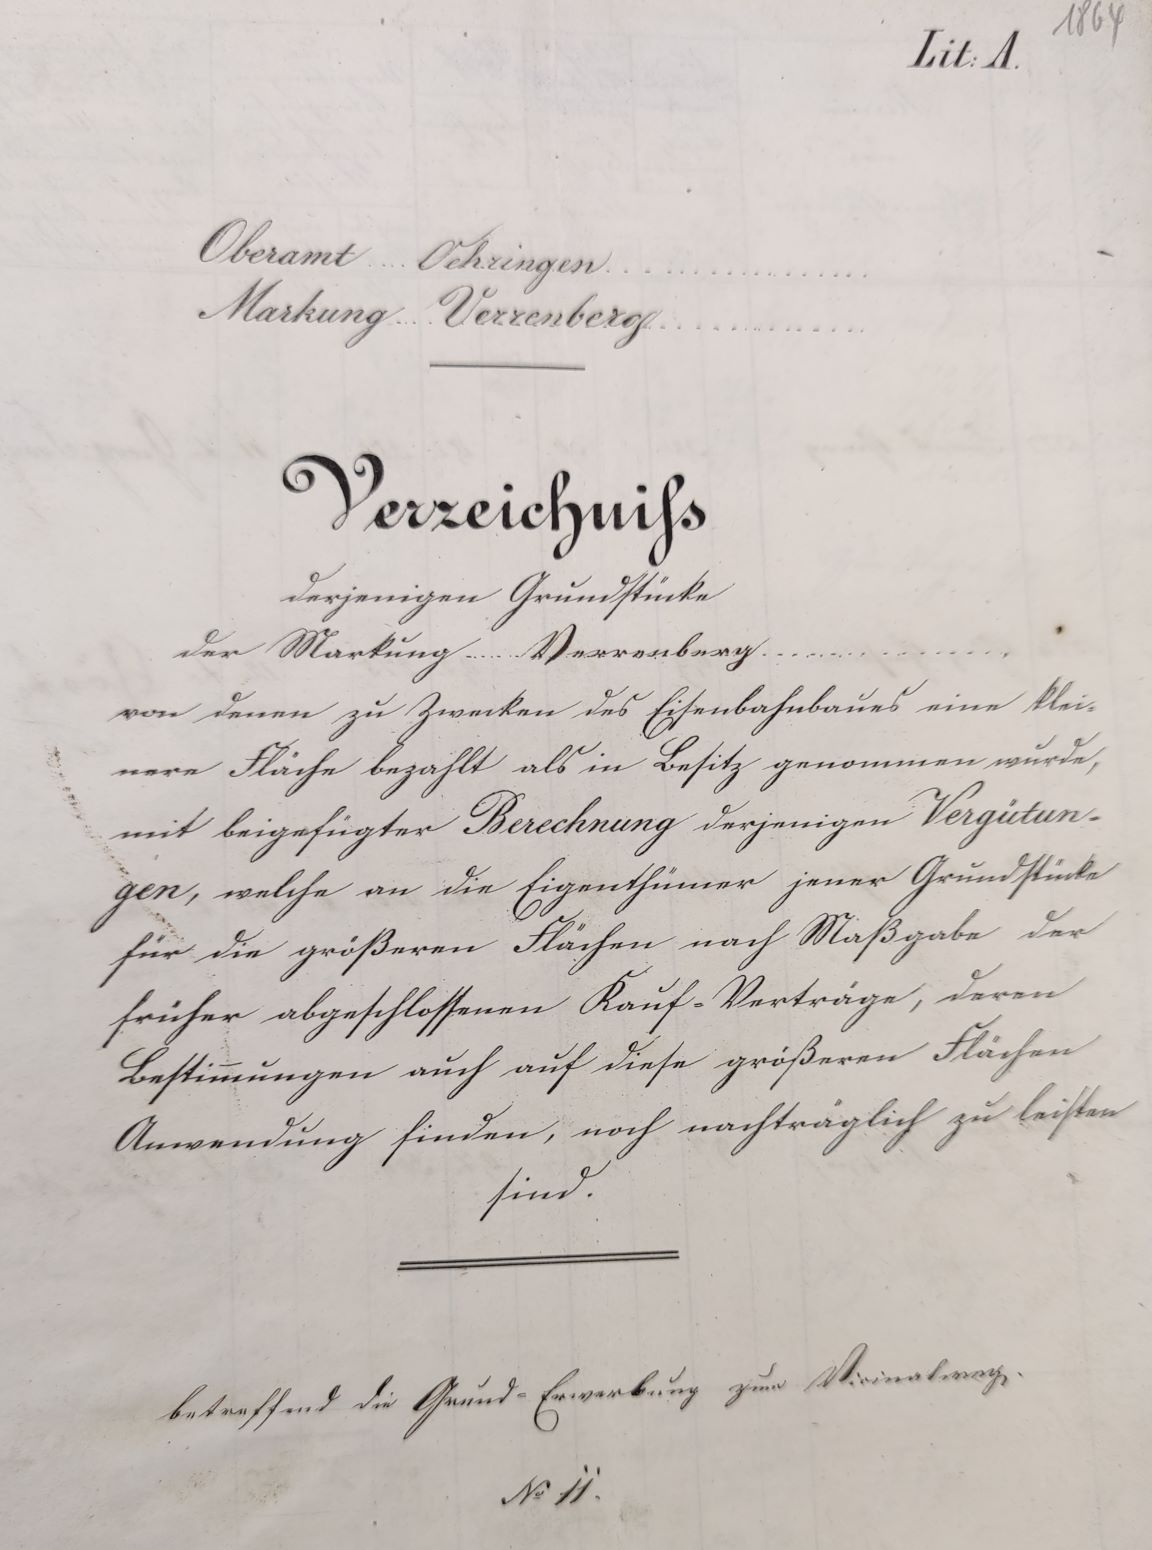 1864
Lit: A.
Oberamt .... Oehringen
Markung .... Verrenberg
Verzeichniss
derjenigen Grundstücke
der Markung .... Verrenberg
von denen zu Zwecken des Eisenbahnbaues eine klei-
nere Fläche bezahlt als in Besitz genommen wurde,
mit beigefügter Berechnung derjenigen Vergütun-
gen, welche an die Eigenthümer jener Grundstücke
für die größeren Flächen nach Maßgabe der
früher abgeschlossenen Kauf-Verträge, deren
Bestimmungen auch auf diese größeren Flächen
Anwendung finden, noch nachträglich zu leisten
sind.
betreffend die Grund-Erwerbung zum Vicinalweg.
No 11.